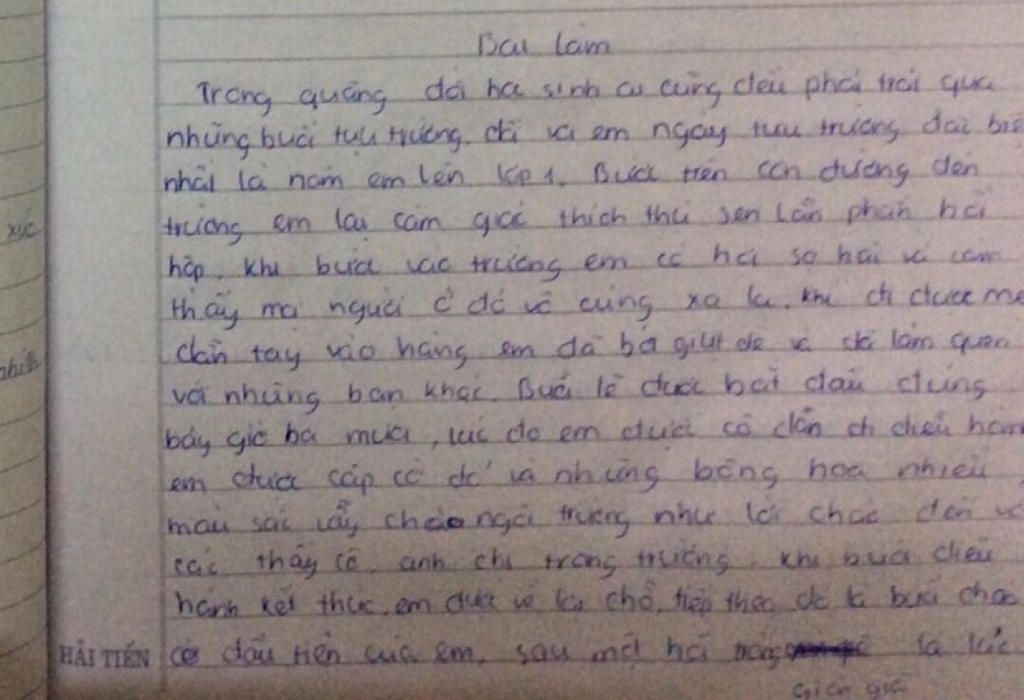 Bài làm
Trong quãng đời học sinh ai cũng đều phải trải qua
những buổi tựu trường, đối với em ngày tựu trường đặc biệ
nhất là năm em lên lớp 1. Bước trên con đường đến
trường em lại cảm giác thích thú xen lẫn phần hồi
xúc
hộp, khi bước vào trường em có hơi sợ hãi và cảm
thấy mọi người ở đó vô cùng xa lạ. khi đi được mẹ
dẫn tay vào hàng em đã bớt
và đã làm quen
với những bạn khác. Buổi lễ được bắt đầu đúng
bảy giờ ba mươi, lúc đó em được cô dẫn đi diễu hàn
em được cấp cờ đỏ và những bông hoa nhiều
màu sắc vẫy chào ngôi trường như lời chào đến vớ
các thầy cô, anh chị trong trường. khi buổi diễu
hành kết thúc, em được về lại chỗ, tiếp theo đó là buổi chào
HẢI TIẾN
cờ đầu tiên của em, sau một hồi
là lúc